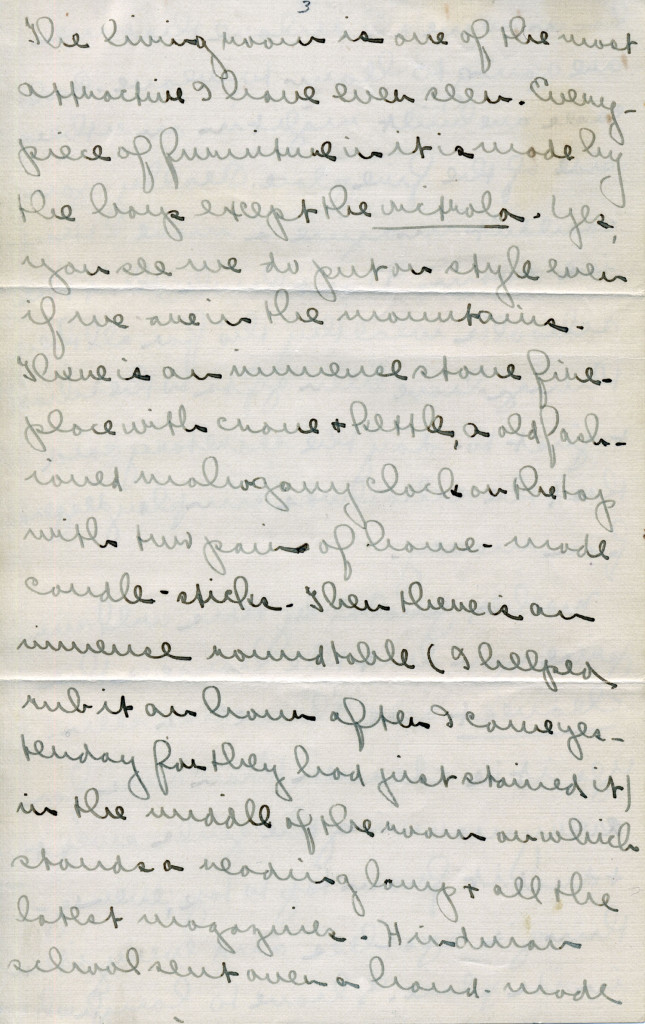 3
The living room is one of the most
attractive I have ever seen. Every-
piece of furniture in it is made by
the boys except the victrola. Yes,
you see we do put on style even
if we are in the mountains.
There is an immense stone fire-
place with crane + kettle, a old fash-
ioned mahogany clock on the top
with two pairs of home-made
candle-sticks. Then there is an
immense round table (I helped
rub it an hour after I came yes-
terday for they had just stained it)
in the middle of the room on which
stands a reading lamp + all the
latest magazines. Hindman
school sent over a hand-made